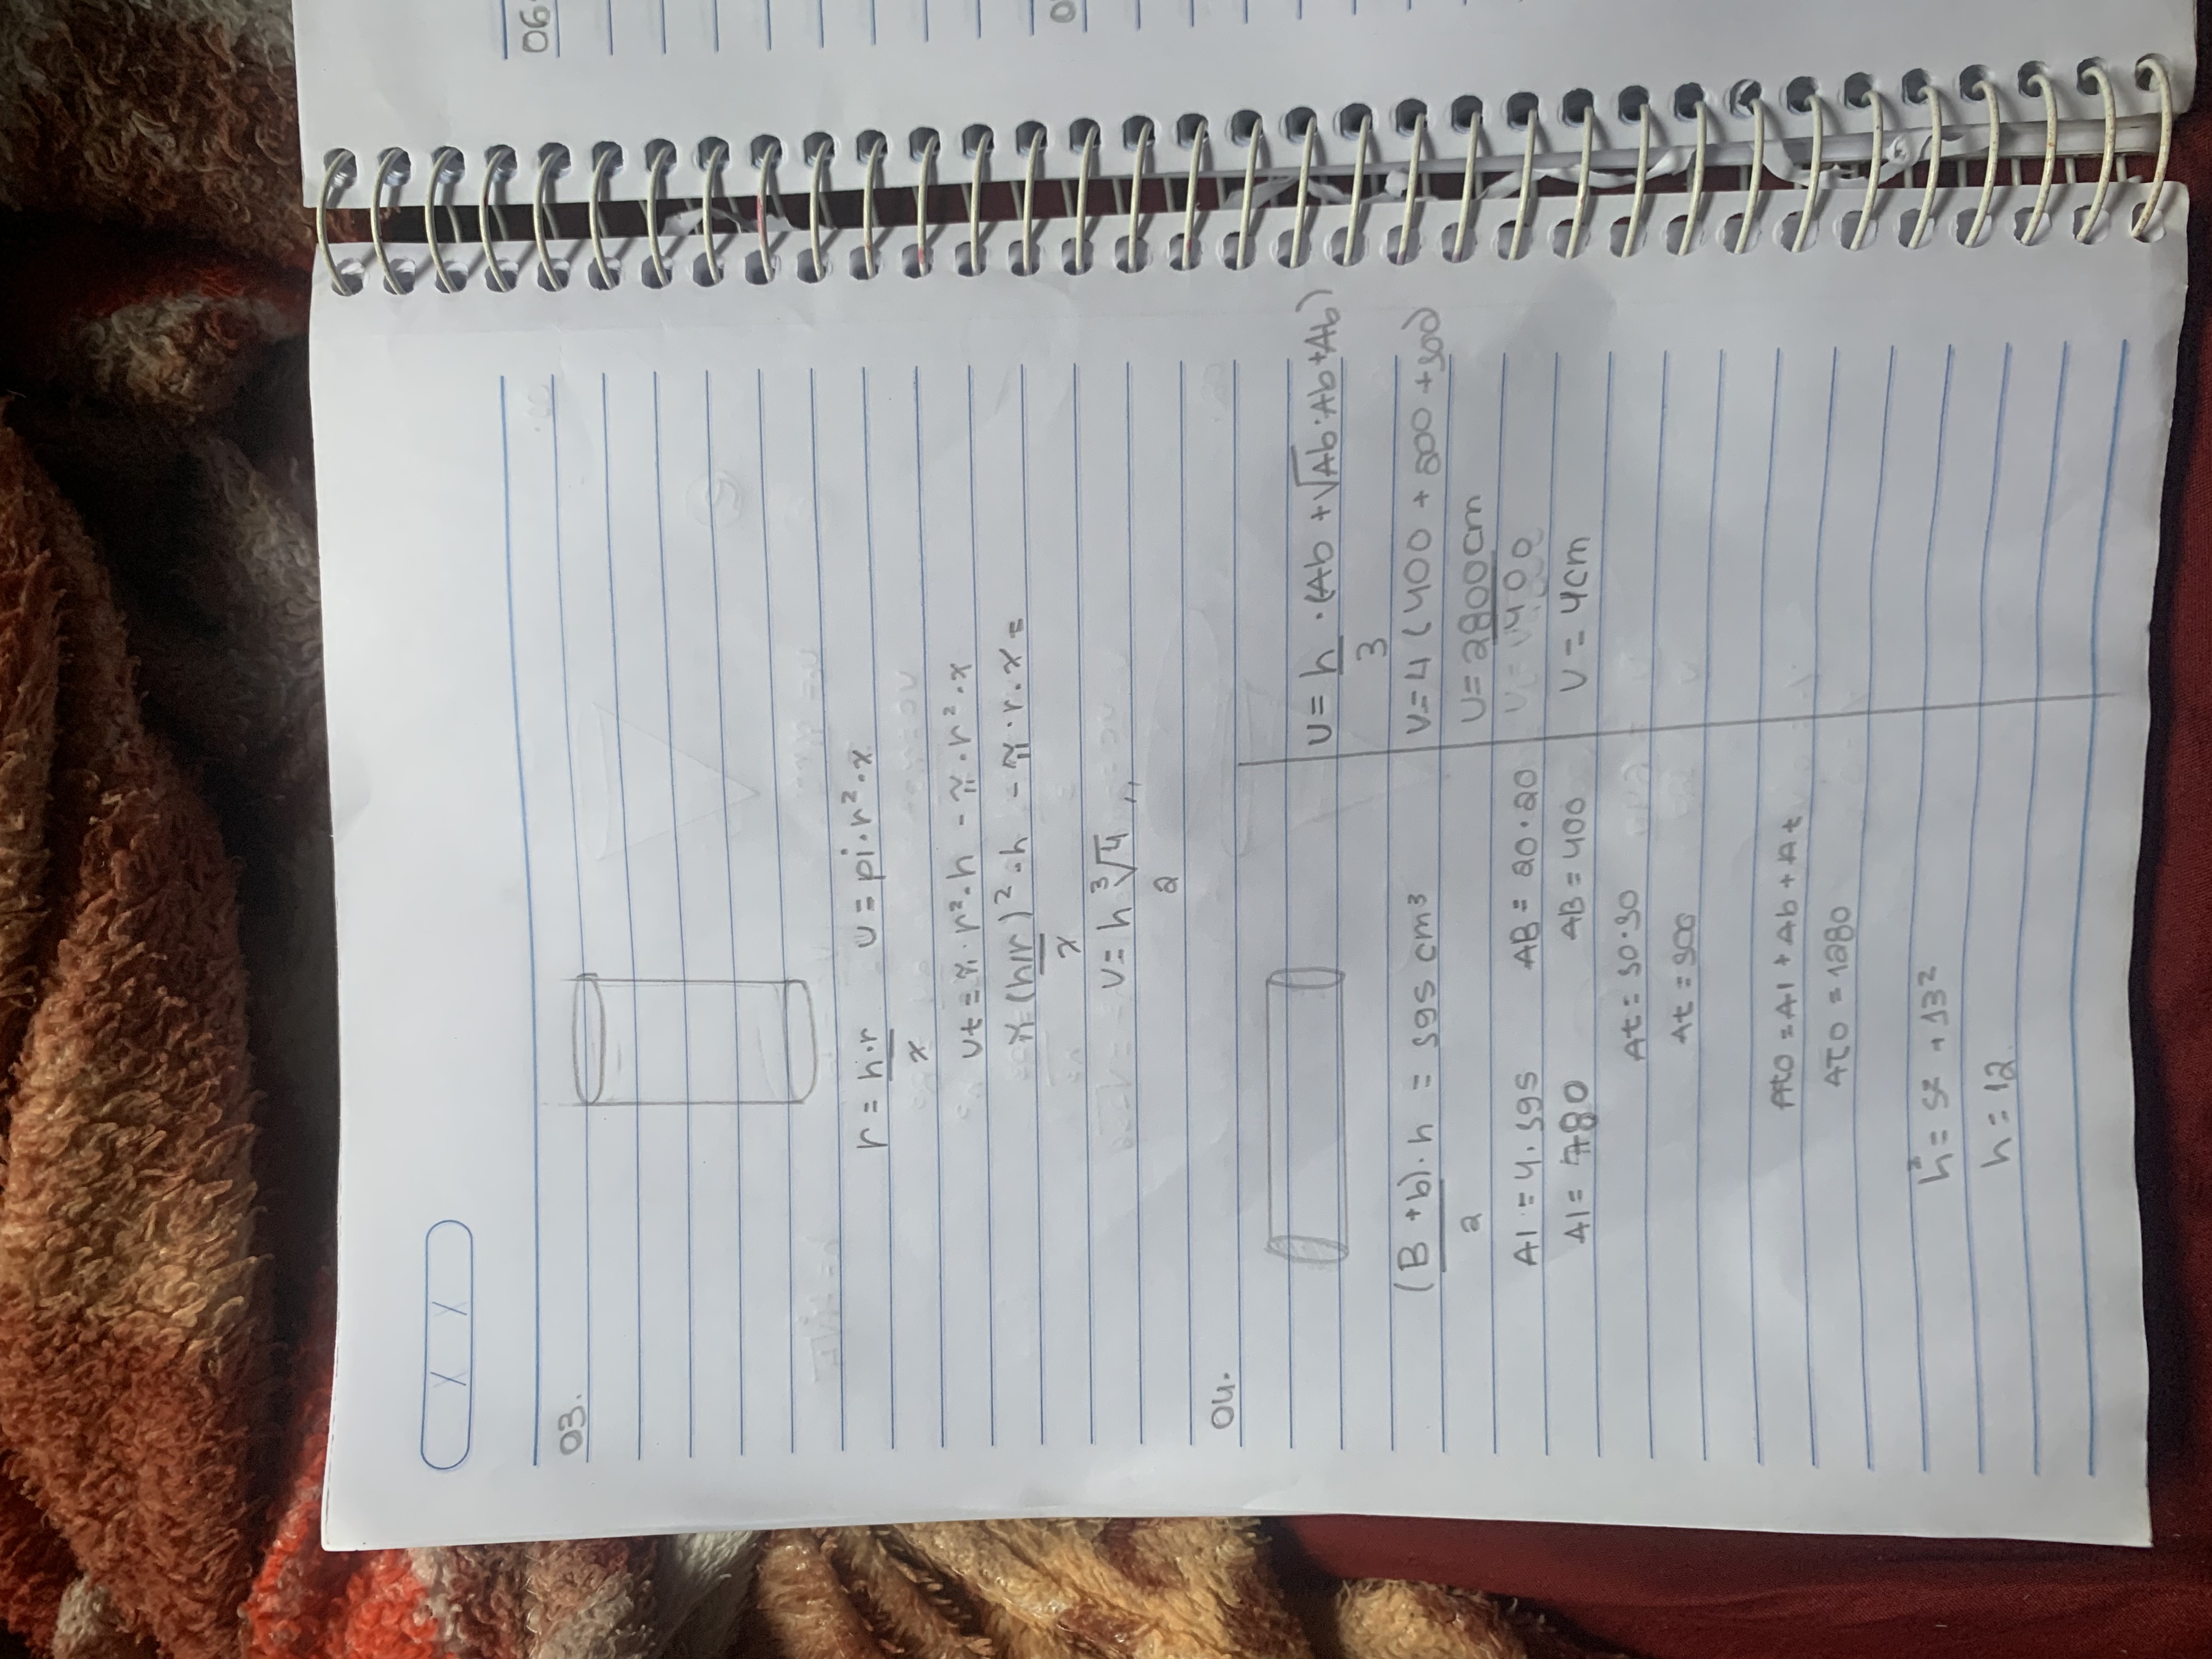 03.
r = h·r / x   v = pi·r²·x
vt = π·r²·h - π·r²·x
π (h/r / x)²·h - π·r·x =
v = h ∛4 / 2
04.
(B + b)·h / 2 = 395 cm³
Al = 4.395   AB = 20·20
Al = 780   AB = 400
At = 30·30
At = 300
Ato = Al + Ab + At
ATO = 1280
h² = 5² + 13²
h = 12
v = h / 3 · (Ab + √Ab·Ab + Ab)
v = 4 (400 + 200 + 300)
v = 2800cm
400
v = 4cm
06
0